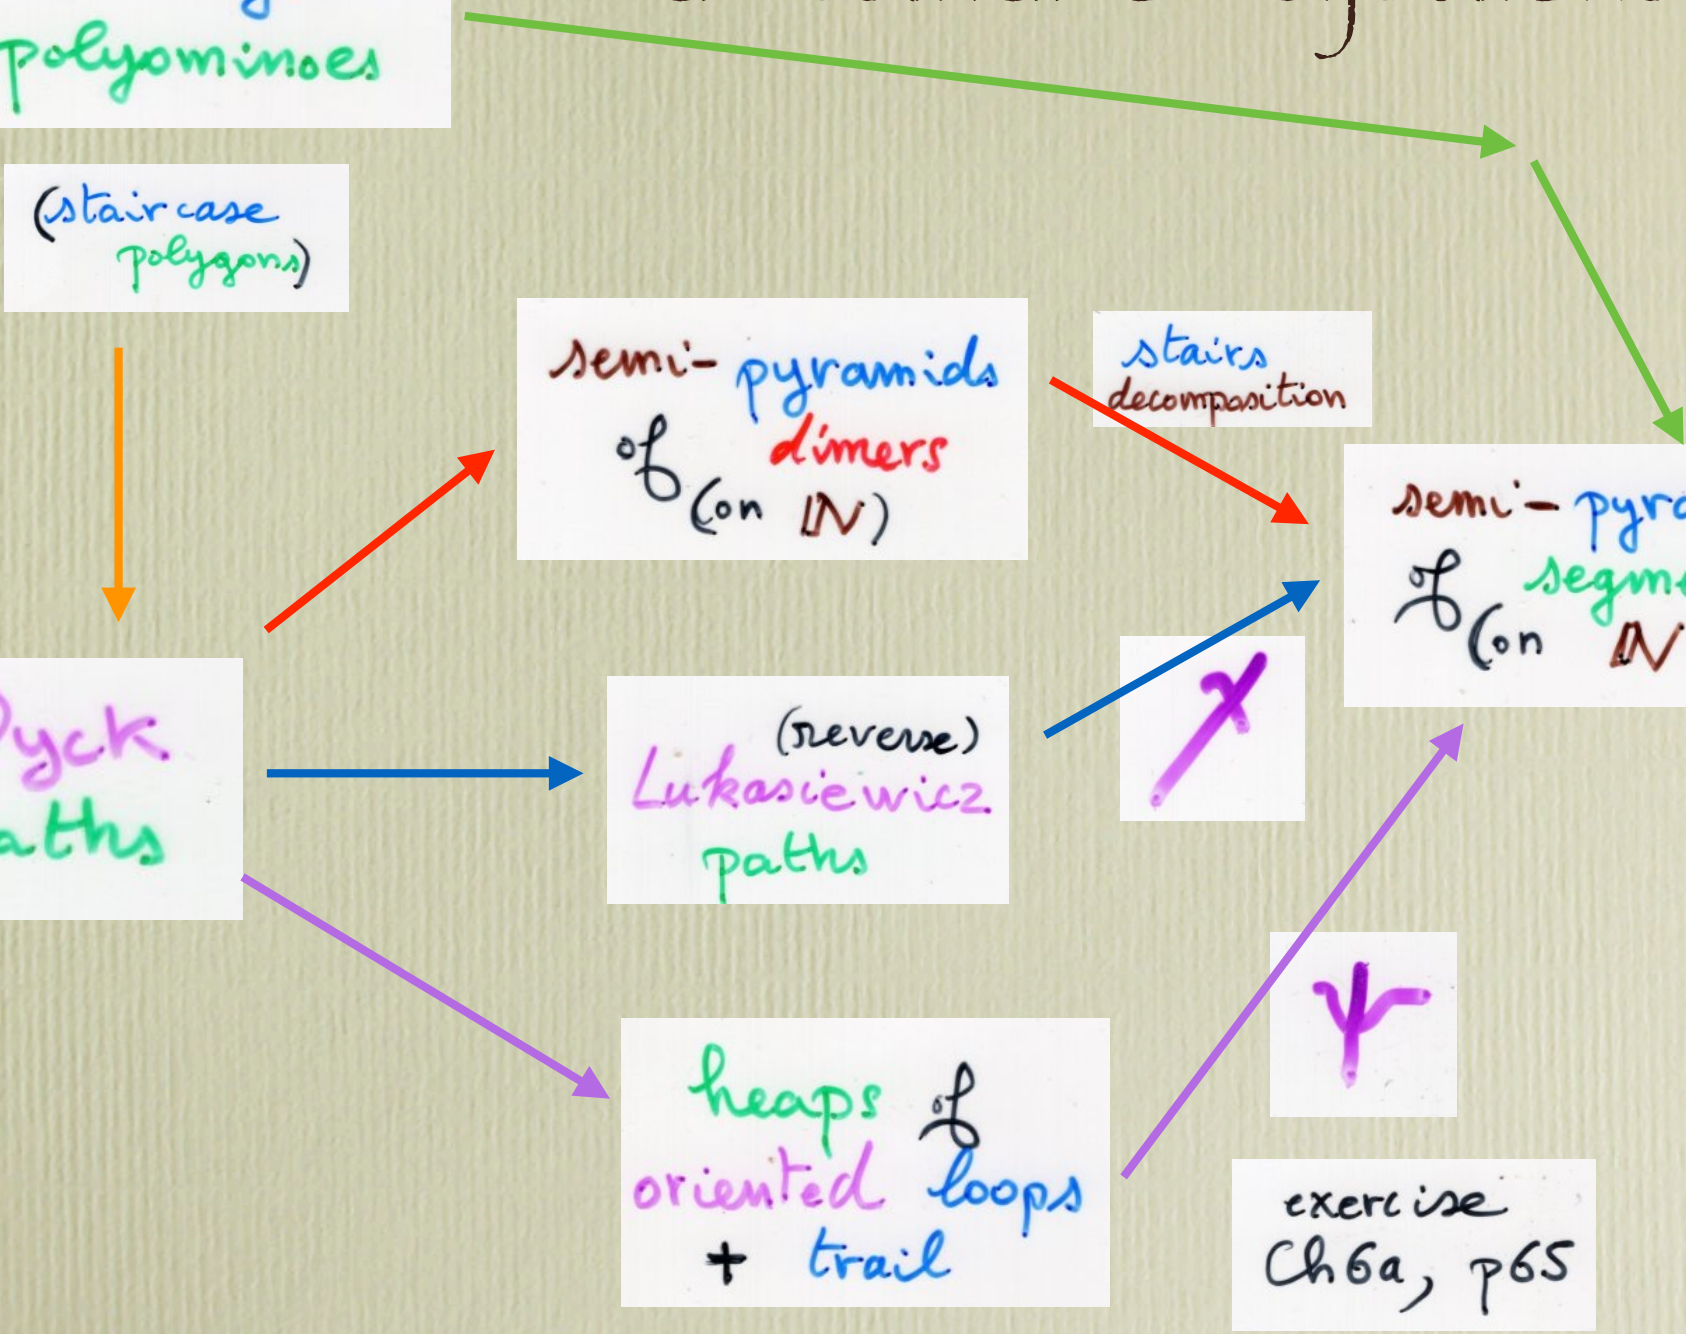 polyominoes
(staircase
polygons)
semi-pyramids
of dimers
(on IN)
stairs
decomposition
semi-pyra
of segme
(on IN
Dyck
aths
(reverse)
Lukasiewicz
paths
heaps of
oriented loops
+ trail
exercise
Ch6a, p65